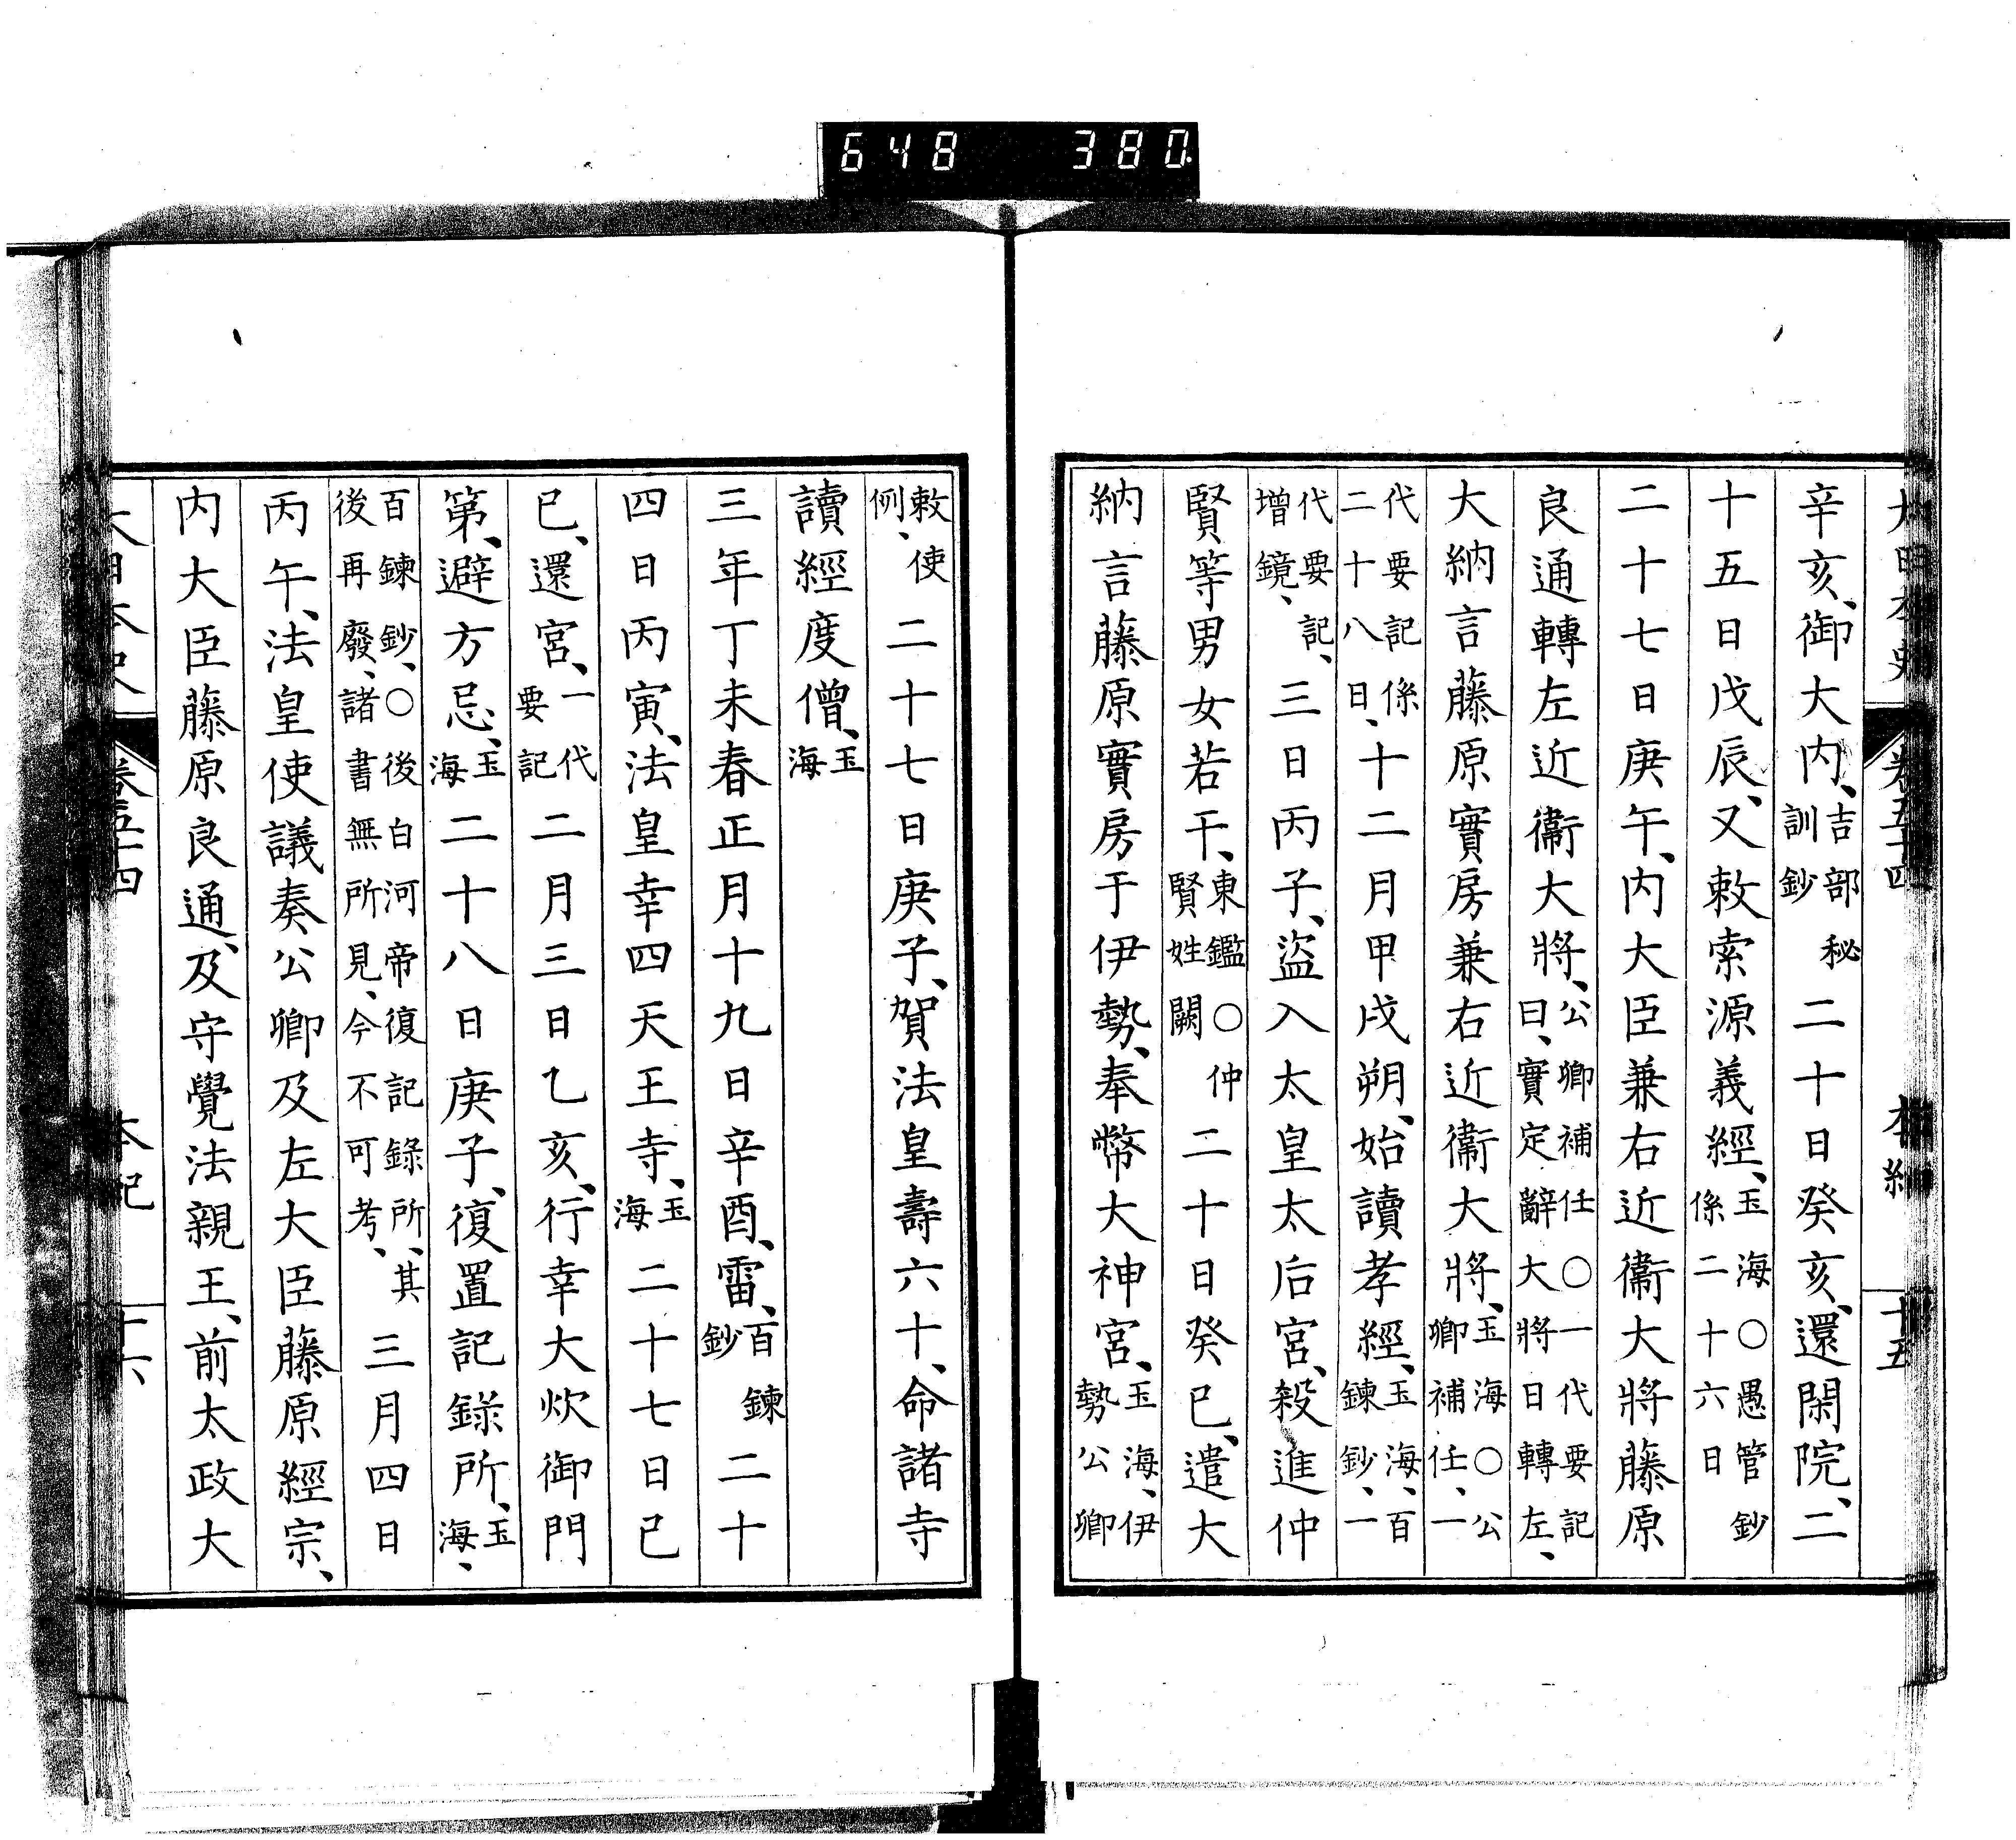 648 380
大日本史 卷五十四 本紀 十五
辛亥、御大內、吉部秘訓鈔二十日癸亥、還閑院、二
十五日戊辰、又敕索源義經、玉海○愚管鈔係二十六日
二十七日庚午、內大臣兼右近衞大將藤原
良通轉左近衞大將、公卿補任○一代要記曰、實定辭大將日轉左、
大納言藤原實房兼右近衞大將、玉海○公卿補任、一
代要記係二十八日、十二月甲戌朔、始讀孝經、玉海、百鍊鈔、一
代要記、增鏡、三日丙子、盜入太皇太后宮、殺進仲
賢等男女若干、東鑑○仲賢姓闕二十日癸巳、遣大
納言藤原實房于伊勢、奉幣大神宮、玉海、伊勢公卿
敕使例、二十七日庚子、賀法皇壽六十、命諸寺
讀經度僧、玉海
三年丁未春正月十九日辛酉、雷、百鍊鈔二十
四日丙寅、法皇幸四天王寺、玉海二十七日己
巳、還宮、一代要記二月三日乙亥、行幸大炊御門
第、避方忌、玉海二十八日庚子、復置記錄所、玉海、
百鍊鈔、○後白河帝復記錄所、其後再廢、諸書無所見、今不可考、三月四日
丙午、法皇使議奏公卿及左大臣藤原經宗、
內大臣藤原良通、及守覺法親王、前太政大
大日本史 卷五十四 本紀 十六